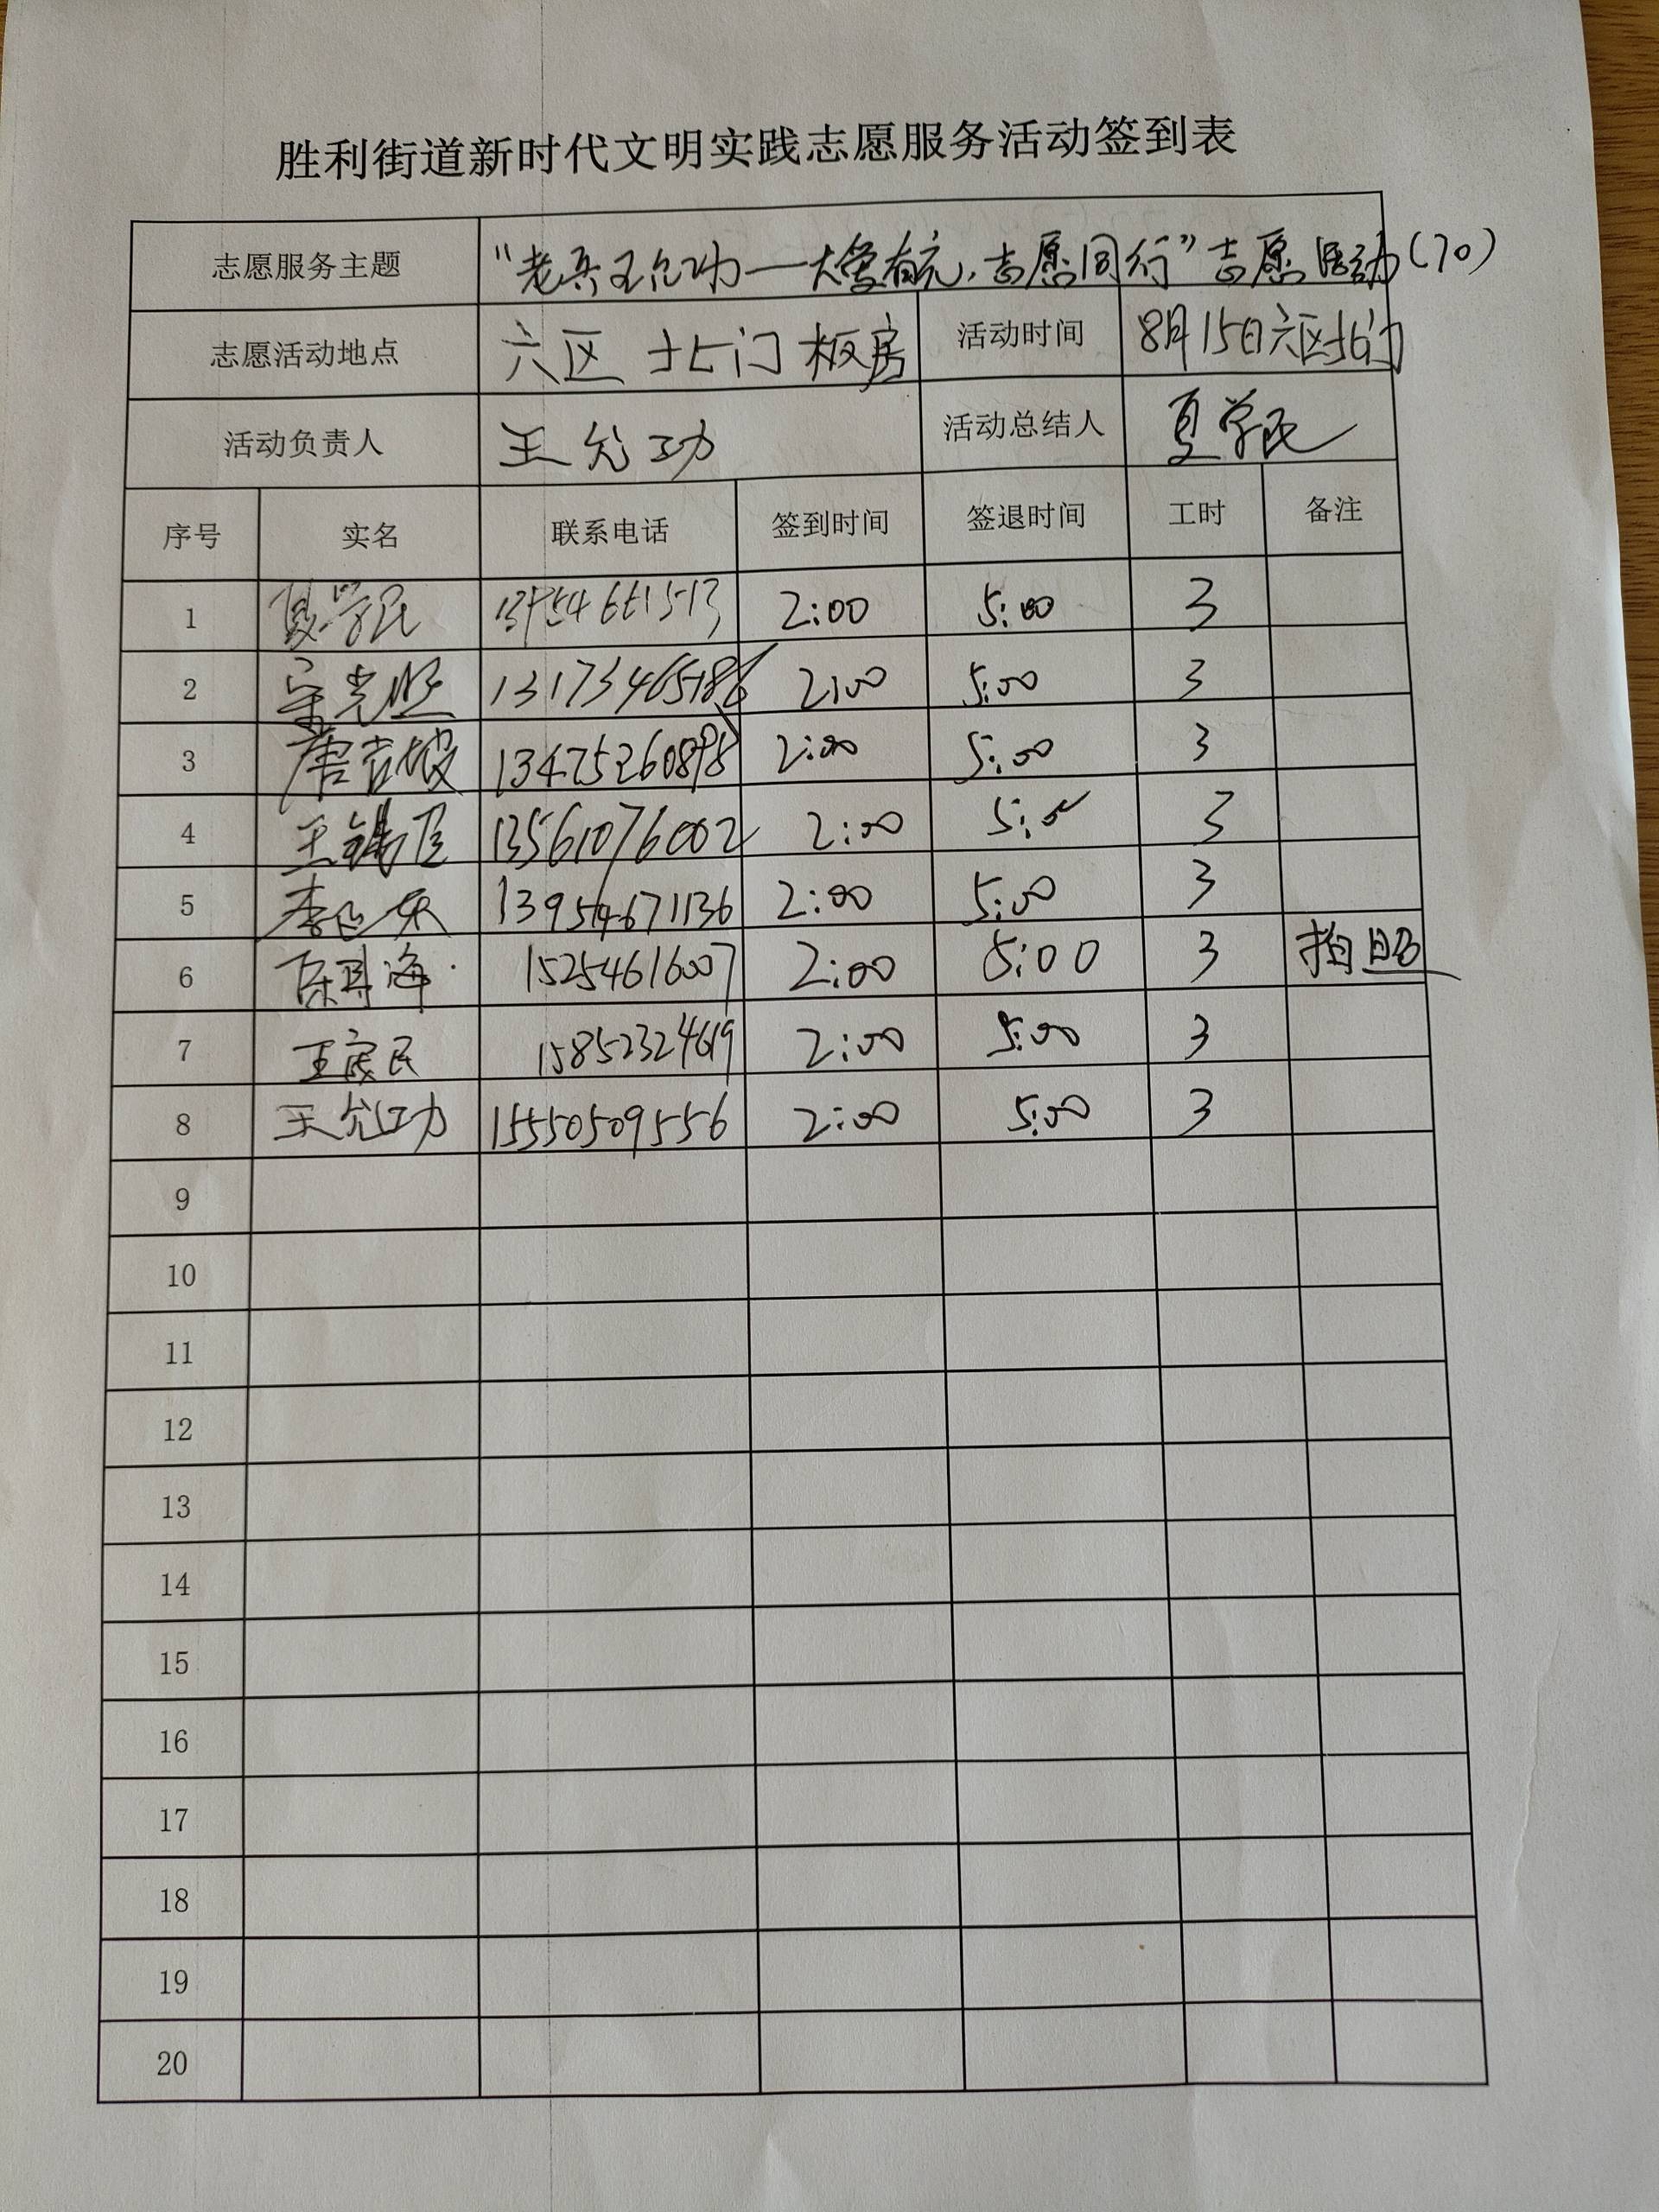 胜利街道新时代文明实践志愿服务活动签到表
志愿服务主题 "老兵王允功—大爱有无,志愿同行"志愿活动(70)
志愿活动地点 六区 北门 板房 活动时间 8月15日六区北门
活动负责人 王允功 活动总结人 夏学民
序号 实名 联系电话 签到时间 签退时间 工时 备注
1 夏学民 2:00 5:00 3
2 宋光照 13173465186 2:00 5:00 3
3 唐吉坡 13475260895 2:00 5:00 3
4 13561076002 2:00 5:00 3
5 13954671136 2:00 5:00 3
6 15254616007 2:00 5:00 3 拍照
7 王家民 15852324619 2:00 5:00 3
8 王允功 15550509556 2:00 5:00 3
9
10
11
12
13
14
15
16
17
18
19
20